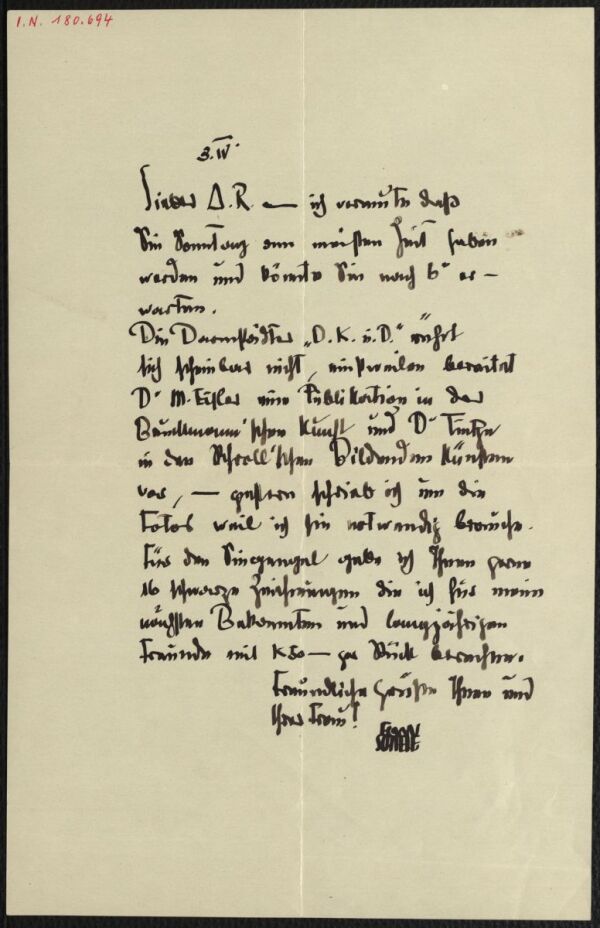 I.N. 180.694
3.IV.
Lieber A.R. — ich vermute daß
Sie Sonntag am meisten Zeit haben
werden und könnte Sie nach 6h er-
warten.
Die Darmstädter „D.K.u.D." rührt
sich scheinbar nicht, einstweilen bereitet
Dr M. Eisler eine Publikation in der
Bruckmann'schen Kunst und Dr Tietze
in den Schroll'schen Bildenden Künsten
vor, — gestern schrieb ich um die
Fotos weil ich sie notwendig brauche.
Für den gebe ich Ihnen gerne
16 schwarze Zeichnungen die ich für meine
nächsten Bekannten und langjährigen
Freunde mit K 50 — per Stück berechne.
Freundliche Grüße Ihnen und
Ihrer Frau!
EGON
SCHIELE